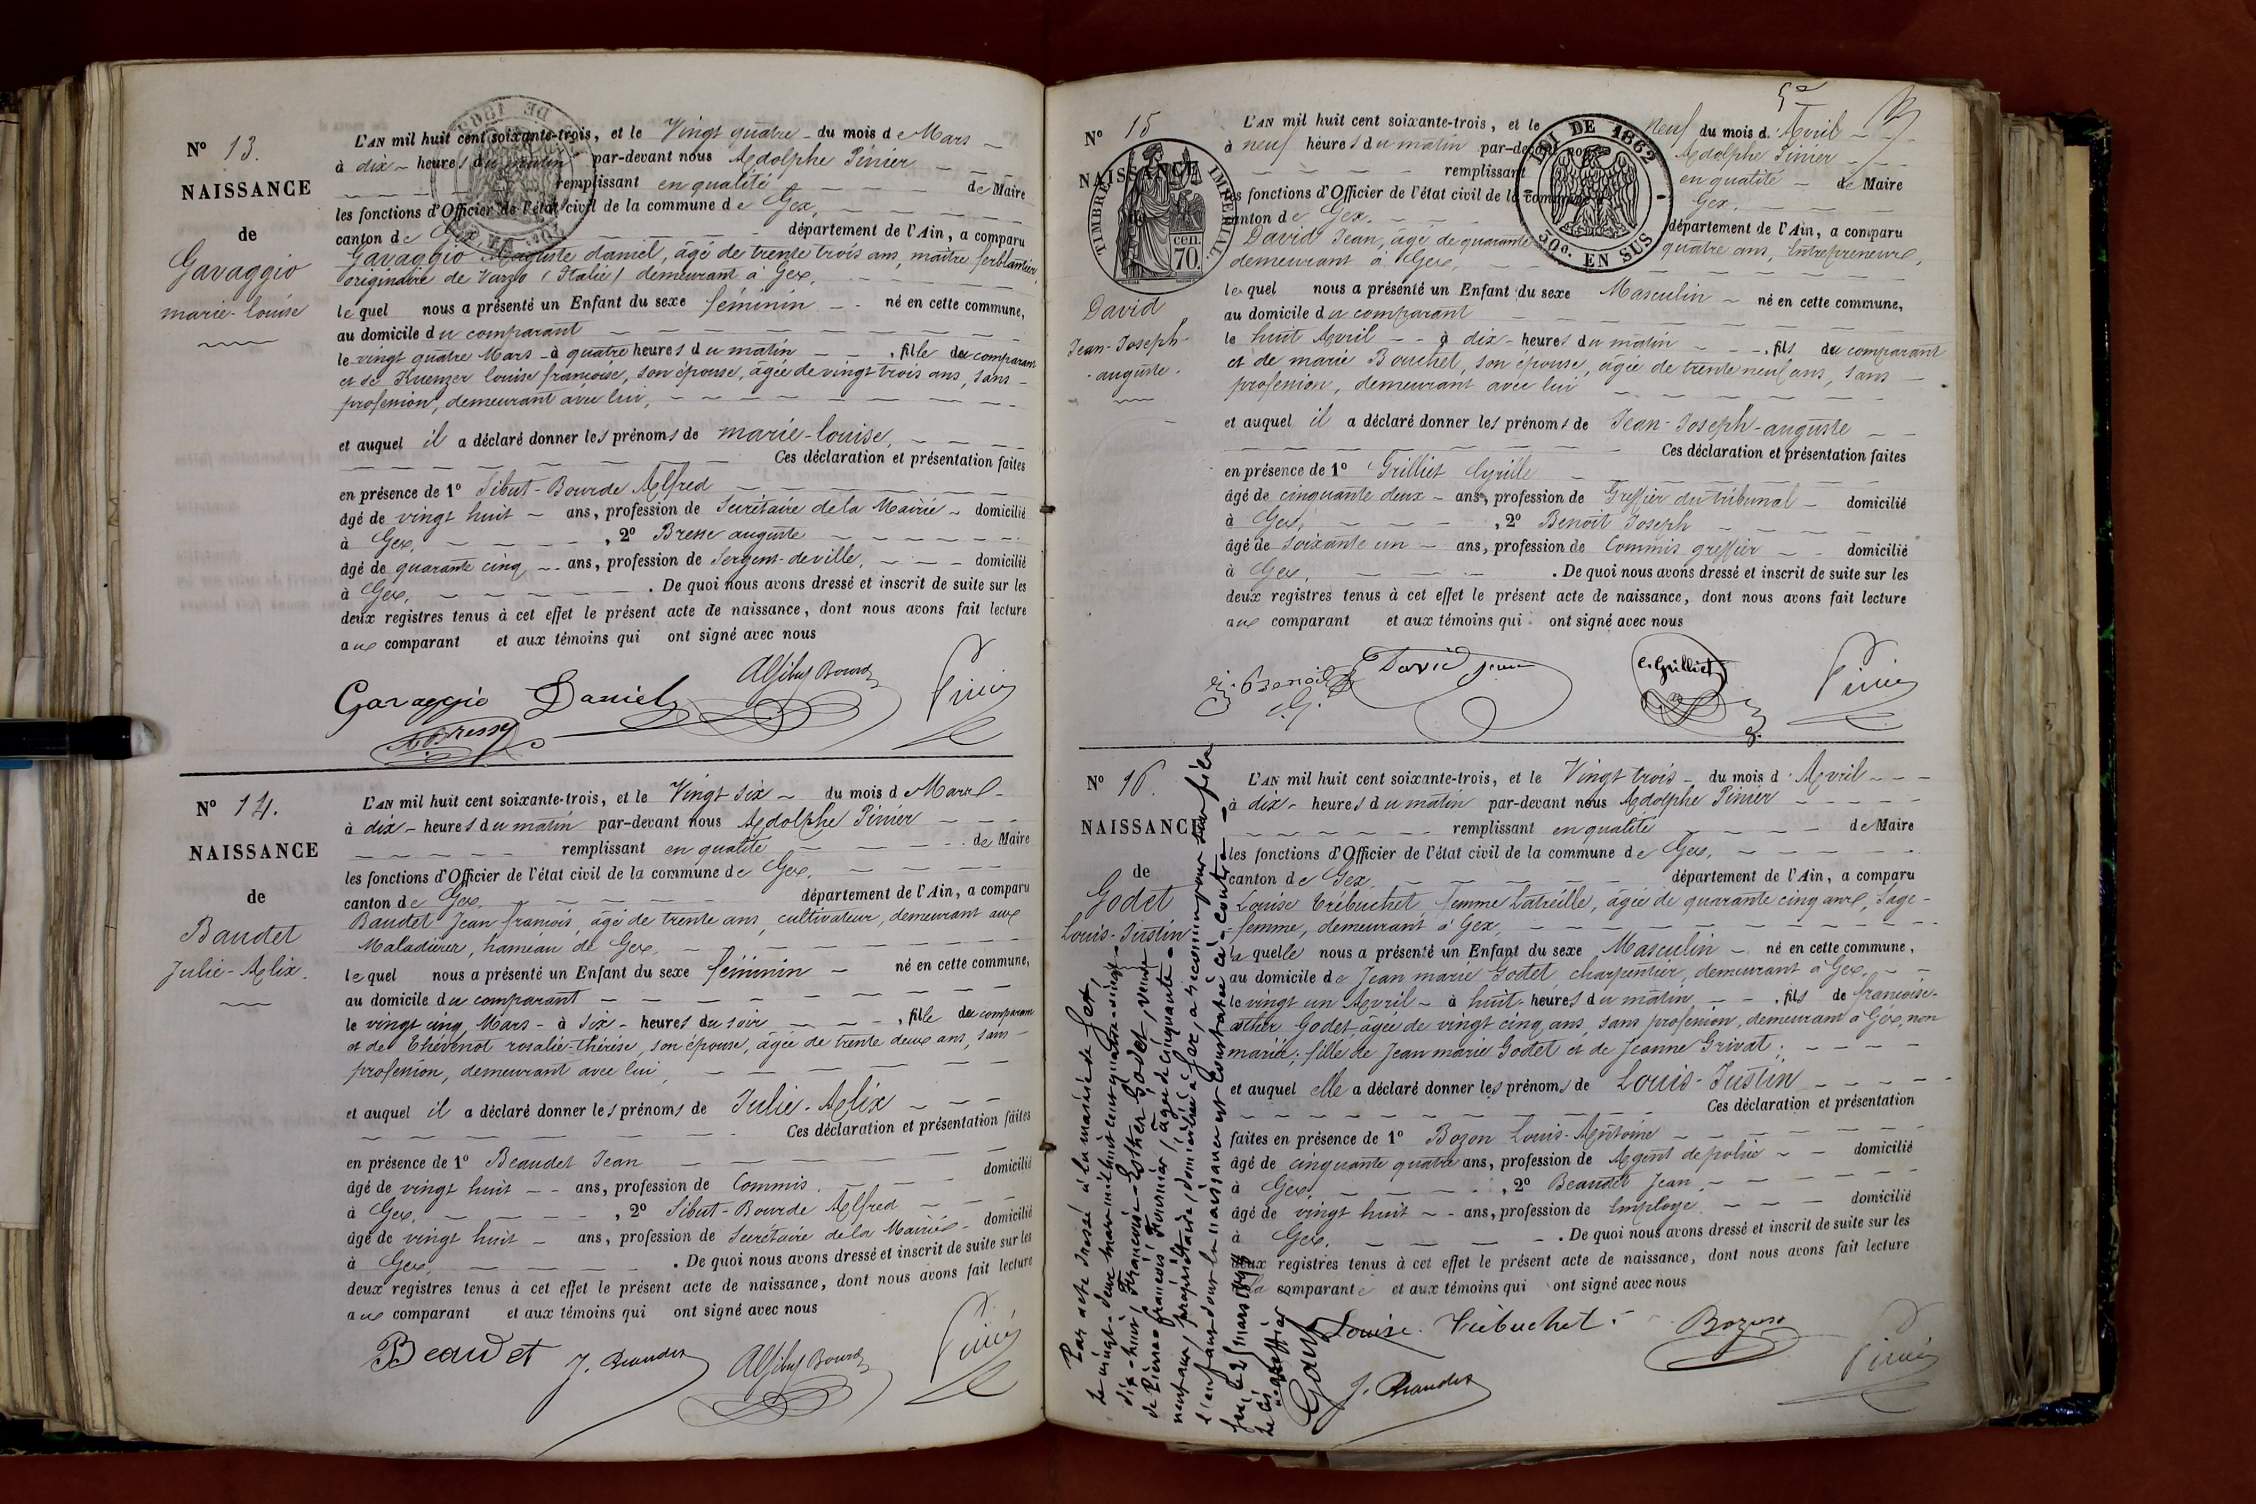 N° 13.
NAISSANCE
de
Gavaggio
marie-louise
L'AN mil huit cent soixante-trois, et le Vingt quatre du mois de Mars
à dix heures du matin par-devant nous Adolphe Pinier
remplissant en qualité de Maire
les fonctions d'Officier de l'état civil de la commune de Gex,
canton de Gex département de l'Ain, a comparu
Gavaggio Auguste daniel, âgé de trente trois ans, maître ferblantier,
originaire de Varzo (Italie) demeurant à Gex,
lequel nous a présenté un Enfant du sexe féminin né en cette commune,
au domicile du comparant
le vingt quatre Mars à quatre heures du matin, fille du comparant
et de Kuenzer louise françoise, son épouse, âgée de vingt trois ans, sans
profession, demeurant avec lui,
et auquel il a déclaré donner les prénoms de marie-louise,
Ces déclaration et présentation faites
en présence de 1° Sibut-Bourde Alfred
âgé de vingt huit ans, profession de Secrétaire de la Mairie domicilié
à Gex, , 2° Bresse auguste
âgé de quarante cinq ans, profession de Sergent-de ville, domicilié
à Gex, . De quoi nous avons dressé et inscrit de suite sur les
deux registres tenus à cet effet le présent acte de naissance, dont nous avons fait lecture
aux comparant et aux témoins qui ont signé avec nous
Gavaggio Daniel ASibut Bourde Pinier
A. Bresse
N° 14.
NAISSANCE
de
Baudet
Julie-Alix.
L'AN mil huit cent soixante-trois, et le Vingt six du mois de Mars
à dix heures du matin par-devant nous Adolphe Pinier
remplissant en qualité de Maire
les fonctions d'Officier de l'état civil de la commune de Gex,
canton de Gex département de l'Ain, a comparu
Baudet Jean françois, âgé de trente ans, cultivateur, demeurant aux
Maladières, hameau de Gex,
lequel nous a présenté un Enfant du sexe féminin né en cette commune,
au domicile du comparant
le vingt cinq Mars à six heures du soir, fille du comparant
et de Thévenot rosalie-thérèse, son épouse, âgée de trente deux ans, sans
profession, demeurant avec lui,
et auquel il a déclaré donner les prénoms de Julie-Alix
Ces déclaration et présentation faites
en présence de 1° Beaudet Jean
âgé de vingt huit ans, profession de Commis domicilié
à Gex, , 2° Sibut-Bourde Alfred
âgé de vingt huit ans, profession de Secrétaire de la Mairie domicilié
à Gex, . De quoi nous avons dressé et inscrit de suite sur les
deux registres tenus à cet effet le présent acte de naissance, dont nous avons fait lecture
aux comparant et aux témoins qui ont signé avec nous
Beaudet J. Beaudet ASibut Bourde Pinier
N° 15
NAISSANCE
TIMBRE IMPÉRIAL.
cen.
70.
David
Jean-Joseph-
auguste.
LOI DE 1862
50c. EN SUS
L'AN mil huit cent soixante-trois, et le neuf du mois d'Avril
à neuf heures du matin par-devant nous Adolphe Pinier
remplissant en qualité de Maire
les fonctions d'Officier de l'état civil de la commune de Gex,
canton de Gex, département de l'Ain, a comparu
David Jean, âgé de quarante quatre ans, Entrepreneur,
demeurant à Gex,
lequel nous a présenté un Enfant du sexe Masculin né en cette commune,
au domicile du comparant
le huit Avril à dix heures du matin, fils du comparant
et de marie Bouchet, son épouse, âgée de trente neuf ans, sans
profession, demeurant avec lui
et auquel il a déclaré donner les prénoms de Jean-Joseph-auguste
Ces déclaration et présentation faites
en présence de 1° Grilliet Cyrille
âgé de cinquante deux ans, profession de Greffier du tribunal domicilié
à Gex, , 2° Benoît Joseph
âgé de soixante un ans, profession de Commis greffier domicilié
à Gex, . De quoi nous avons dressé et inscrit de suite sur les
deux registres tenus à cet effet le présent acte de naissance, dont nous avons fait lecture
aux comparant et aux témoins qui ont signé avec nous
J. Benoit c.g. David Jean C. Grilliet Pinier
N° 16.
NAISSANCE
de
Godet
Louis-Justin
L'AN mil huit cent soixante-trois, et le Vingt trois du mois d'Avril
à dix heures du matin par-devant nous Adolphe Pinier
remplissant en qualité de Maire
les fonctions d'Officier de l'état civil de la commune de Gex,
canton de Gex département de l'Ain, a comparu
Louise Trébuchet femme Latreille, âgée de quarante cinq ans, Sage-
femme, demeurant à Gex,
laquelle nous a présenté un Enfant du sexe Masculin né en cette commune,
au domicile de Jean marie Godet, charpentier, demeurant à Gex,
le vingt un Avril à huit heures du matin, fils de françoise-
esther Godet, âgée de vingt cinq ans, sans profession, demeurant à Gex, non
mariée; fille de Jean marie Godet et de Jeanne Grivat;
et auquel elle a déclaré donner les prénoms de Louis-Justin
Ces déclaration et présentation
faites en présence de 1° Bozon Louis-Antoine
âgé de cinquante quatre ans, profession de Agent de police domicilié
à Gex, , 2° Beaudet Jean
âgé de vingt huit ans, profession de Employé domicilié
à Gex, . De quoi nous avons dressé et inscrit de suite sur les
deux registres tenus à cet effet le présent acte de naissance, dont nous avons fait lecture
à la comparante et aux témoins qui ont signé avec nous
Louise Trébuchet Bozon Pinier
J. Beaudet
Par acte dressé à la mairie de Gex
le vingt-deux mars mil huit cent quatre-vingt-
dix-huit, Françoise-Esther Godet, veuve
de Pierre françois âgée de cinquante-
neuf ans, propriétaire, domiciliée à Gex, a reconnu pour son fils
l'enfant dont la naissance est constatée ci-contre.
Gex, le 21 mars 1898
Le greffier